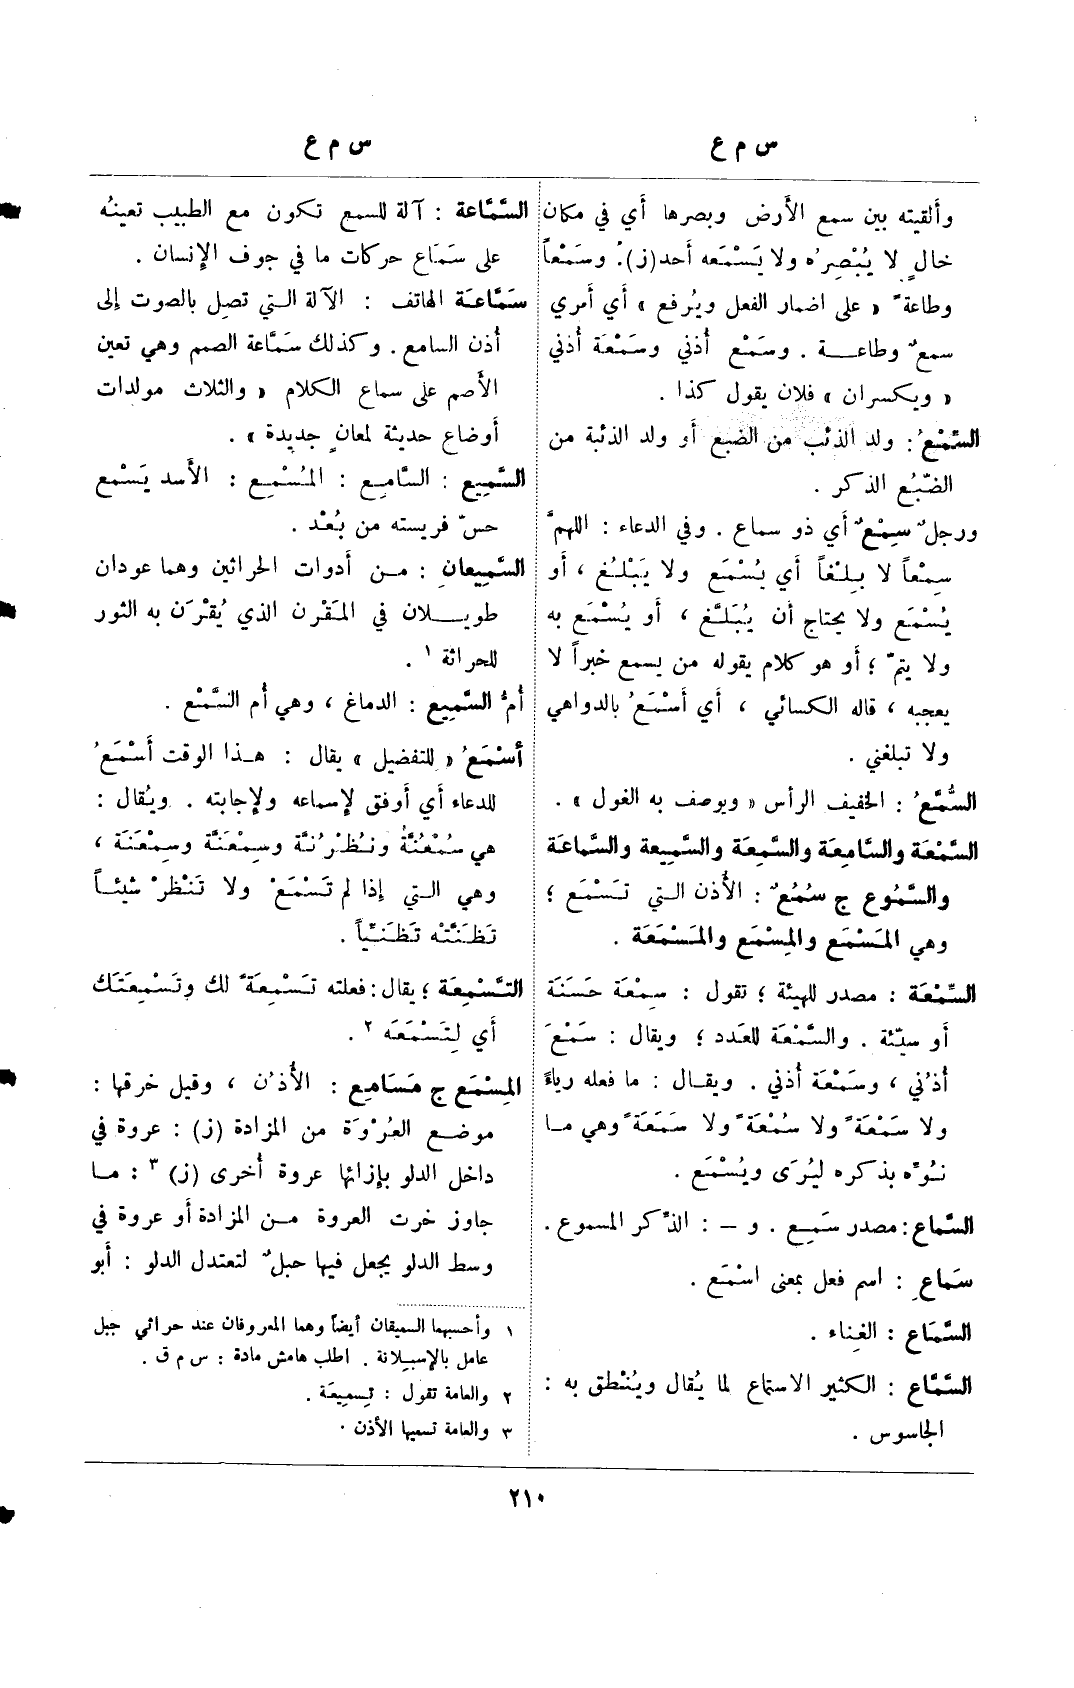 س م ع
وألقيته بين سمع الأرض وبصرها أي في مكان
خالٍ لا يُبْصِرُه ولا يَسْمَعه أحد (ز). وسَمْعاً
وطاعةً « على اضمار الفعل ويُرفع » أي أمري
سمعٌ وطاعـــة . وسَمْع أُذني وسَمْعَة أُذني
« ويكسران » فلان يقول كذا .
السِّمْعُ : ولد الذئب من الضبع أو ولد الذئبة من
الضَّبُع الذكر .
ورجلٌ سِمْعٌ أي ذو سماع . وفي الدعاء : اللهمَّ
سِمْعاً لا بِلْغاً أي يُسْمَع ولا يَبْلُغ ، أو
يُسْمَع ولا يحتاج أن يُبَلَّغ ، أو يُسْمَع به
ولا يتمّ ؛ أو هو كلام يقوله من يسمع خبراً لا
يعجبه ، قاله الكسائي ، أي أَسْمَعُ بالدواهي
ولا تبلغني .
السُّمَّعُ : الخفيف الرأس « ويوصف به الغول » .
السَّمْعَة والسَّامِعَة والسَّمِعَة والسَّمِيعة والسَّمَّاعَة
والسَّمُوع ج سُمُعٌ : الأُذن الـتي تَسْمَع ؛
وهي المَسْمَع والمِسْمَع والمَسْمَعَة .
السِّمْعَة : مصدر للهيئة ؛ تقول : سِمْعَة حَسَنَة
أو سيّئة . والسَّمْعَة للعدد ؛ ويقال : سَمْعَ
أُذني ، وسَمْعَة أُذني . ويقــال : ما فعله رياءً
ولا سَمْعَةً ولا سُمْعَةً ولا سَمَعَةً وهي مـا
نُوِّه بذكره ليُرَى ويُسْمَع .
السَّماع : مصدر سَمِع . و – : الذِّكر المسموع .
سَماعِ : اسم فعل بمعنى اسْمَع .
السَّمَاع : الغِناء .
السَّمَّاع : الكثير الاستماع لما يُقال ويُنْطق به :
الجاسوس .
س م ع
السَّمَّاعة : آلة للسمع تكون مع الطبيب تعينُه
على سَمَاع حركات ما في جوف الإنسان .
سَمَّاعَة الهاتف : الآلة الـتي تصل بالصوت إلى
أُذن السامع . وكذلك سَمَّاعة الصمم وهي تعين
الأصم على سماع الكلام « والثلاث مولدات
أوضاع حديثة لمعانٍ جديدة » .
السَّمِيع : السَّامِـع : المُسْمِـع : الأسد يَسْمع
حسّ فريسته من بُعْد .
السَّمِيعان : مـن أدوات الحراثين وهما عودان
طويـــلان في المَقْرن الذي يُقْرَن به الثور
للحراثة ١ .
أُمُّ السَّمِيع : الدماغ ، وهي أُم السَّمْع .
أَسْمَعُ « للتفضيل » يقال : هـذا الوقت أَسْمَعُ
للدعاء أي أوفق لإسماعه ولإجابته . ويُقال :
هي سُمْعُنَّةُ ونُظْرُنـَّة وسِمْعَنَّة وسِمْعَنَة ،
وهي الـتي إذا لم تَسْمَعْ ولا تَنْظرْ شيئـاً
تَظَنَّتْه تَظَنِّياً .
التَّسْمِعَة ؛ يقال : فعلته تَسْمِعَةً لك وتَسْمِعَتَك
أي لِتَسْمَعَه ٢ .
المِسْمَع ج مَسَامِع : الأُذن ، وقيل خرقها :
موضـع العُرْوَة من المزادة (ز) : عروة في
داخل الدلو بإزائها عروة أُخرى (ز) ٣ : مـا
جاوز خرت العروة مـن المزادة أو عروة في
وسط الدلو يجعل فيها حبلٌ لتعتدل الدلو : أبو
١ وأحسبهما السميقان أيضاً وهما المعروفان عند حراثي جبل
عامل بالإسبلانة . اطلب هامش مادة : س م ق .
٢ والعامة تقول : تِسمِيعَة .
٣ والعامة تسميها الأذن .
٢١٠